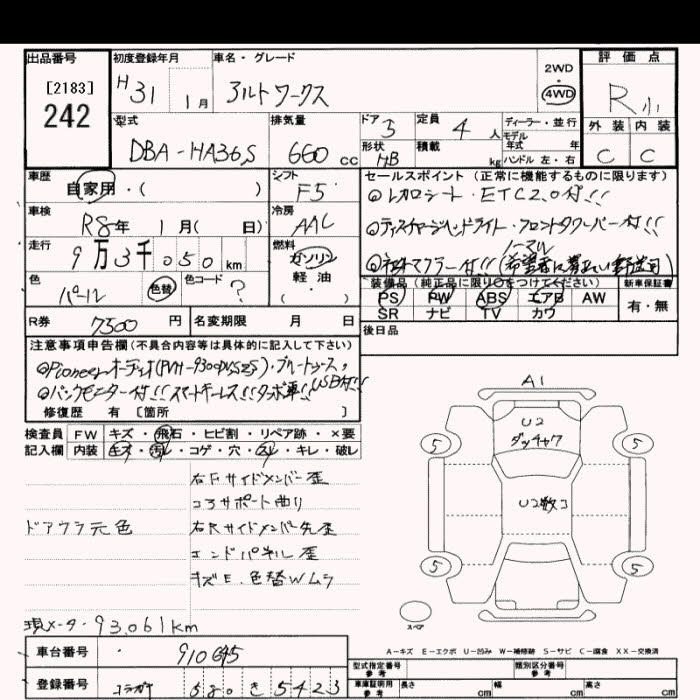 出品番号 初度登録年月 車名・グレード 2WD・4WD 評価点
[2183] 242 H31 1月 アルトワークス R小
型式 排気量 ドア 3 定員 4人 ディーラー・並行 外装 内装
DBA-HA36S 660cc 形状 HB 積載 kg モデル年式 年 ハンドル 左・右 C C
車歴 シフト セールスポイント(正常に機能するものに限ります)
自家用・( ) F5 レカロシート・ETC2.0付!!
車検 R8年 1月( 日) 冷房 AAC ディスチャージヘッドライト・フロントタワーバー付!!
走行 燃料 ノーマル
9万3千050km ガソリン 社外マフラー付!!
色 色替 色コード 軽・油 装備品(純正品に限り○をつけてください) 新車保証書
パール ? ・( ) PS PW ABS エアB AW 有・無
R券 7300円 名変期限 月 日 SR ナビ TV カワ
後日品
注意事項申告欄(不具合内容等は具体的に記入して下さい)
Pioneerオーディオ ブルートゥース、
バックモニター付!!スマートキーレス!!ターボ車!!USB付!!
修復歴 有 [箇所 ]
検査員 FW キズ・飛石・ヒビ割・リペア跡・×要
記入欄 内装 キズ・汚レ・コゲ・穴・スレ・キレ・破レ
A1
U2
ダッチャク
5 5
U2数コ
5 5
スペア
右Fサイドメンバー歪
コアサポート曲り
ドアウラ元色 右Rサイドメンバー先歪
エンドパネル歪
キズE.色替Wムラ
現メーター93,061km
A-キズ E-エクボ U-凹み W-補修跡 S-サビ C-腐食 XX-交換済
車台番号 910645 型式指定番号 参考 類別区分番号 参考
登録番号 680 き 5423 車庫証明用 参考 長さ cm 幅 cm 高さ cm